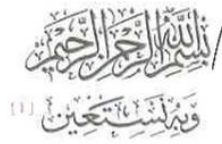 بِسْمِ اللَّهِ الرَّحْمَنِ الرَّحِيمِ
وَبِهِ نَسْتَعِينُ [١]